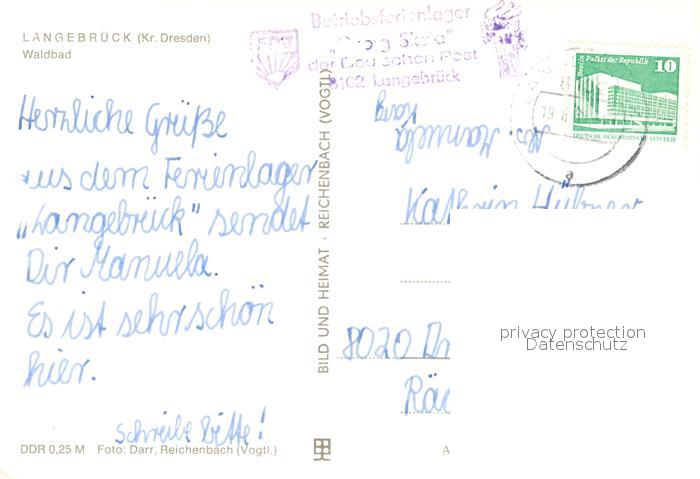 LANGEBRÜCK (Kr. Dresden)
Waldbad
Betriebsferienlager
der Deutschen Post
8102 Langebrück
Berlin Palast der Republik 10
DEUTSCHE DEMOKRATISCHE REPUBLIK
19
a
Herzliche Grüße
aus dem Ferienlager
„Langebrück" sendet
Dir Manuela.
Es ist sehr schön
hier.
schreibe Bitte!
BILD UND HEIMAT · REICHENBACH (VOGTL)
Abs. Manuela
Kathrin Hübner
8020 Dr
Räc
privacy protection
Datenschutz
DDR 0,25 M Foto: Darr, Reichenbach (Vogtl.)
A